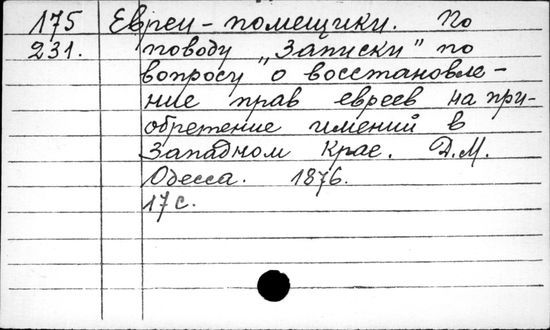 175 Евреи - помещики. По
231. поводу "Записки" по
вопросу о восстановле-
ние прав евреев на при-
обретение имений в
Западном крае. Д.М.
Одесса. 1876.
17 с.